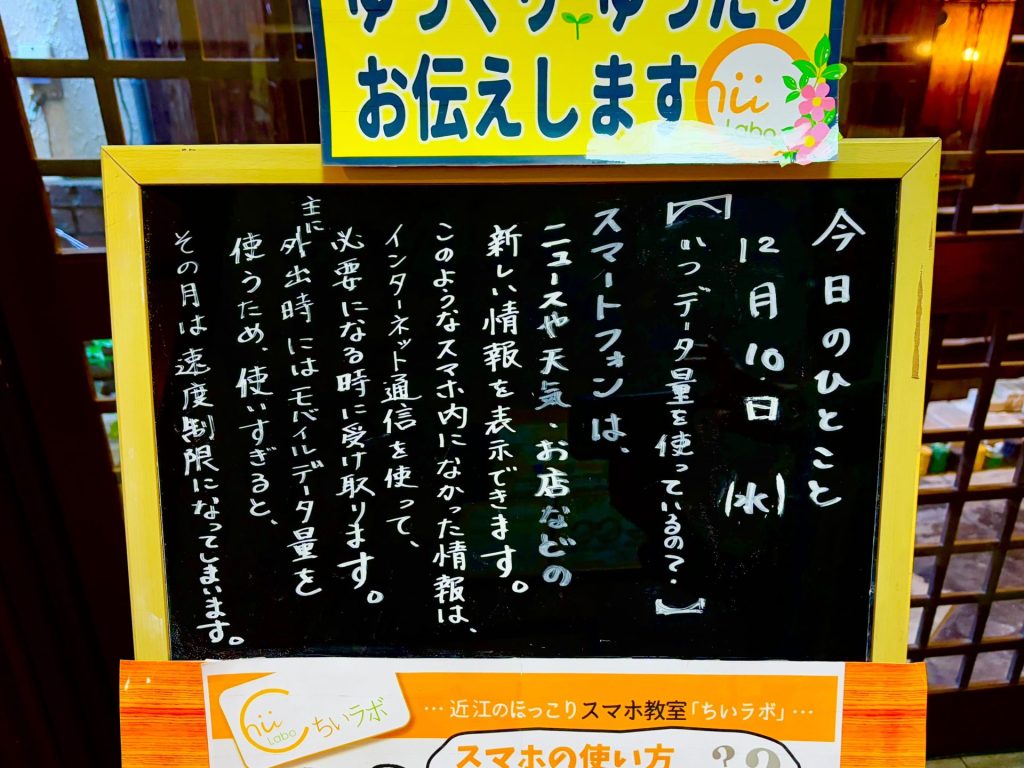 ゆっくりゆったり
お伝えします
hii
Labo
今日のひとこと
12月10日(水)
【いつデータ量を使っているの?】
スマートフォンは、
ニュースや天気・お店などの
新しい情報を表示できます。
このようなスマホ内になかった情報は、
インターネット通信を使って、
必要になる時に受け取ります。
主に外出時にはモバイルデータ量を
使うため、使いすぎると、
その月は速度制限になってしまいます。
hii
Labo
ちいラボ
…近江のほっこりスマホ教室「ちいラボ」…
スマホの使い方
??